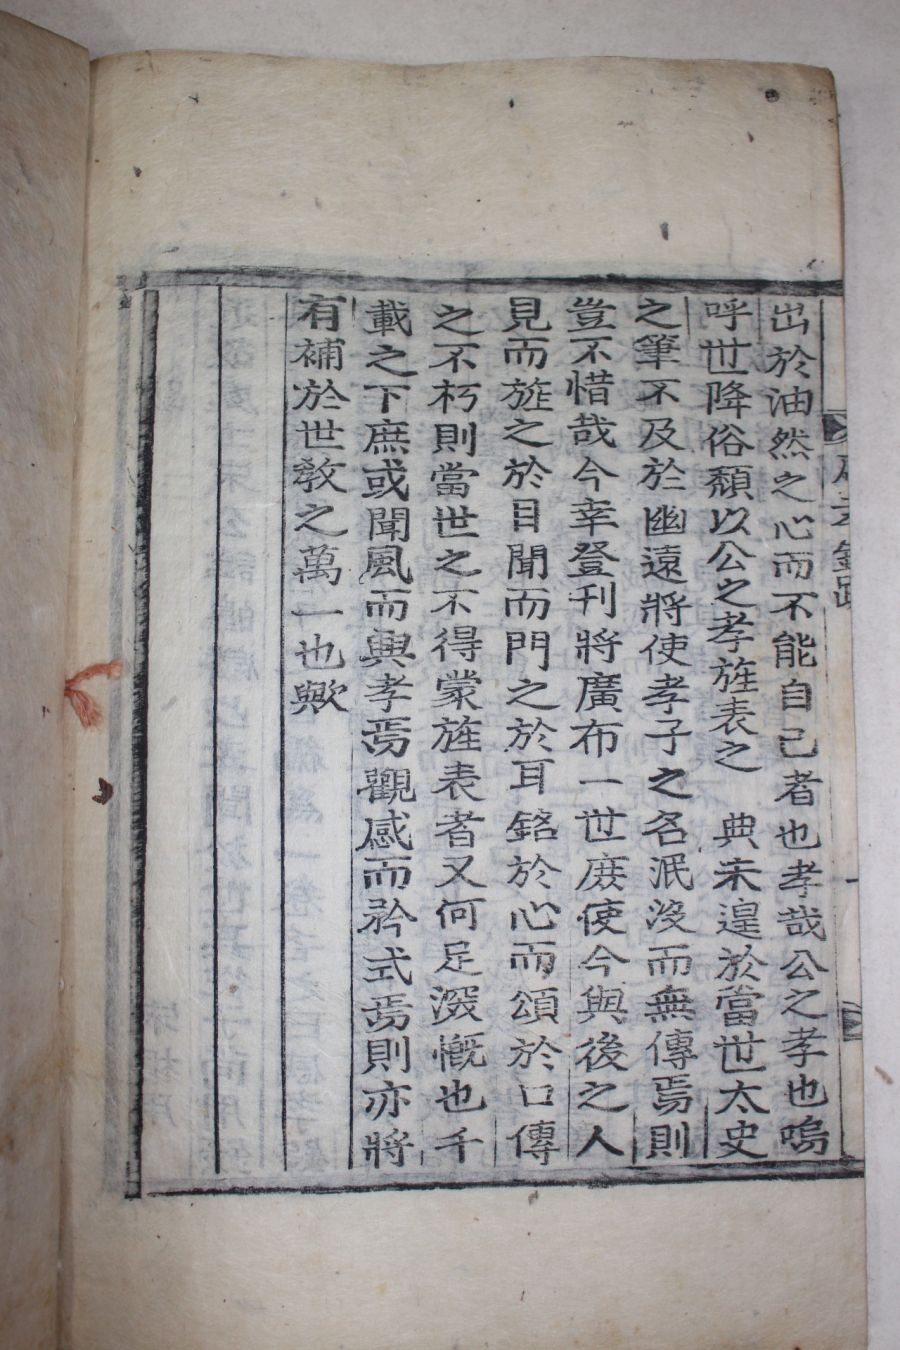 出於油然之心而不能自已者也孝哉公之孝也嗚
呼世降俗頹以公之孝旌表之　典未遑於當世太史
之筆不及於幽遠將使孝子之名泯沒而無傳焉則
豈不惜哉今幸登刊將廣布一世庶使今與後之人
見而旌之於目聞而門之於耳銘於心而頌於口傳
之不朽則當世之不得蒙旌表者又何足深慨也千
載之下庶或聞風而興孝焉觀感而矜式焉則亦將
有補於世敎之萬一也歟